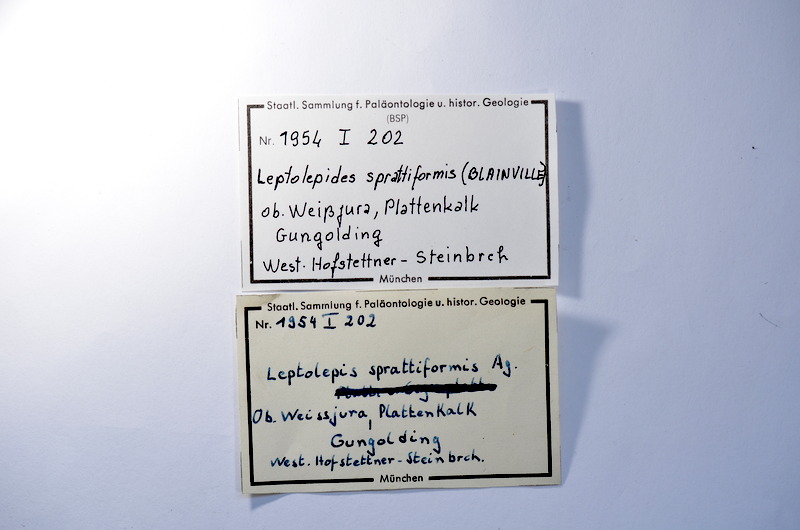 Staatl. Sammlung f. Paläontologie u. histor. Geologie
(BSP)
Nr. 1954 I 202
Leptolepides sprattiformis (BLAINVILLE)
ob. Weißjura, Plattenkalk
Gungolding
West. Hofstettner - Steinbrch
München
Staatl. Sammlung f. Paläontologie u. histor. Geologie
Nr. 1954 I 202
Leptolepis sprattiformis Ag.
Ob. Weissjura, Plattenkalk
Gungolding
West. Hofstettner - Steinbrch.
München